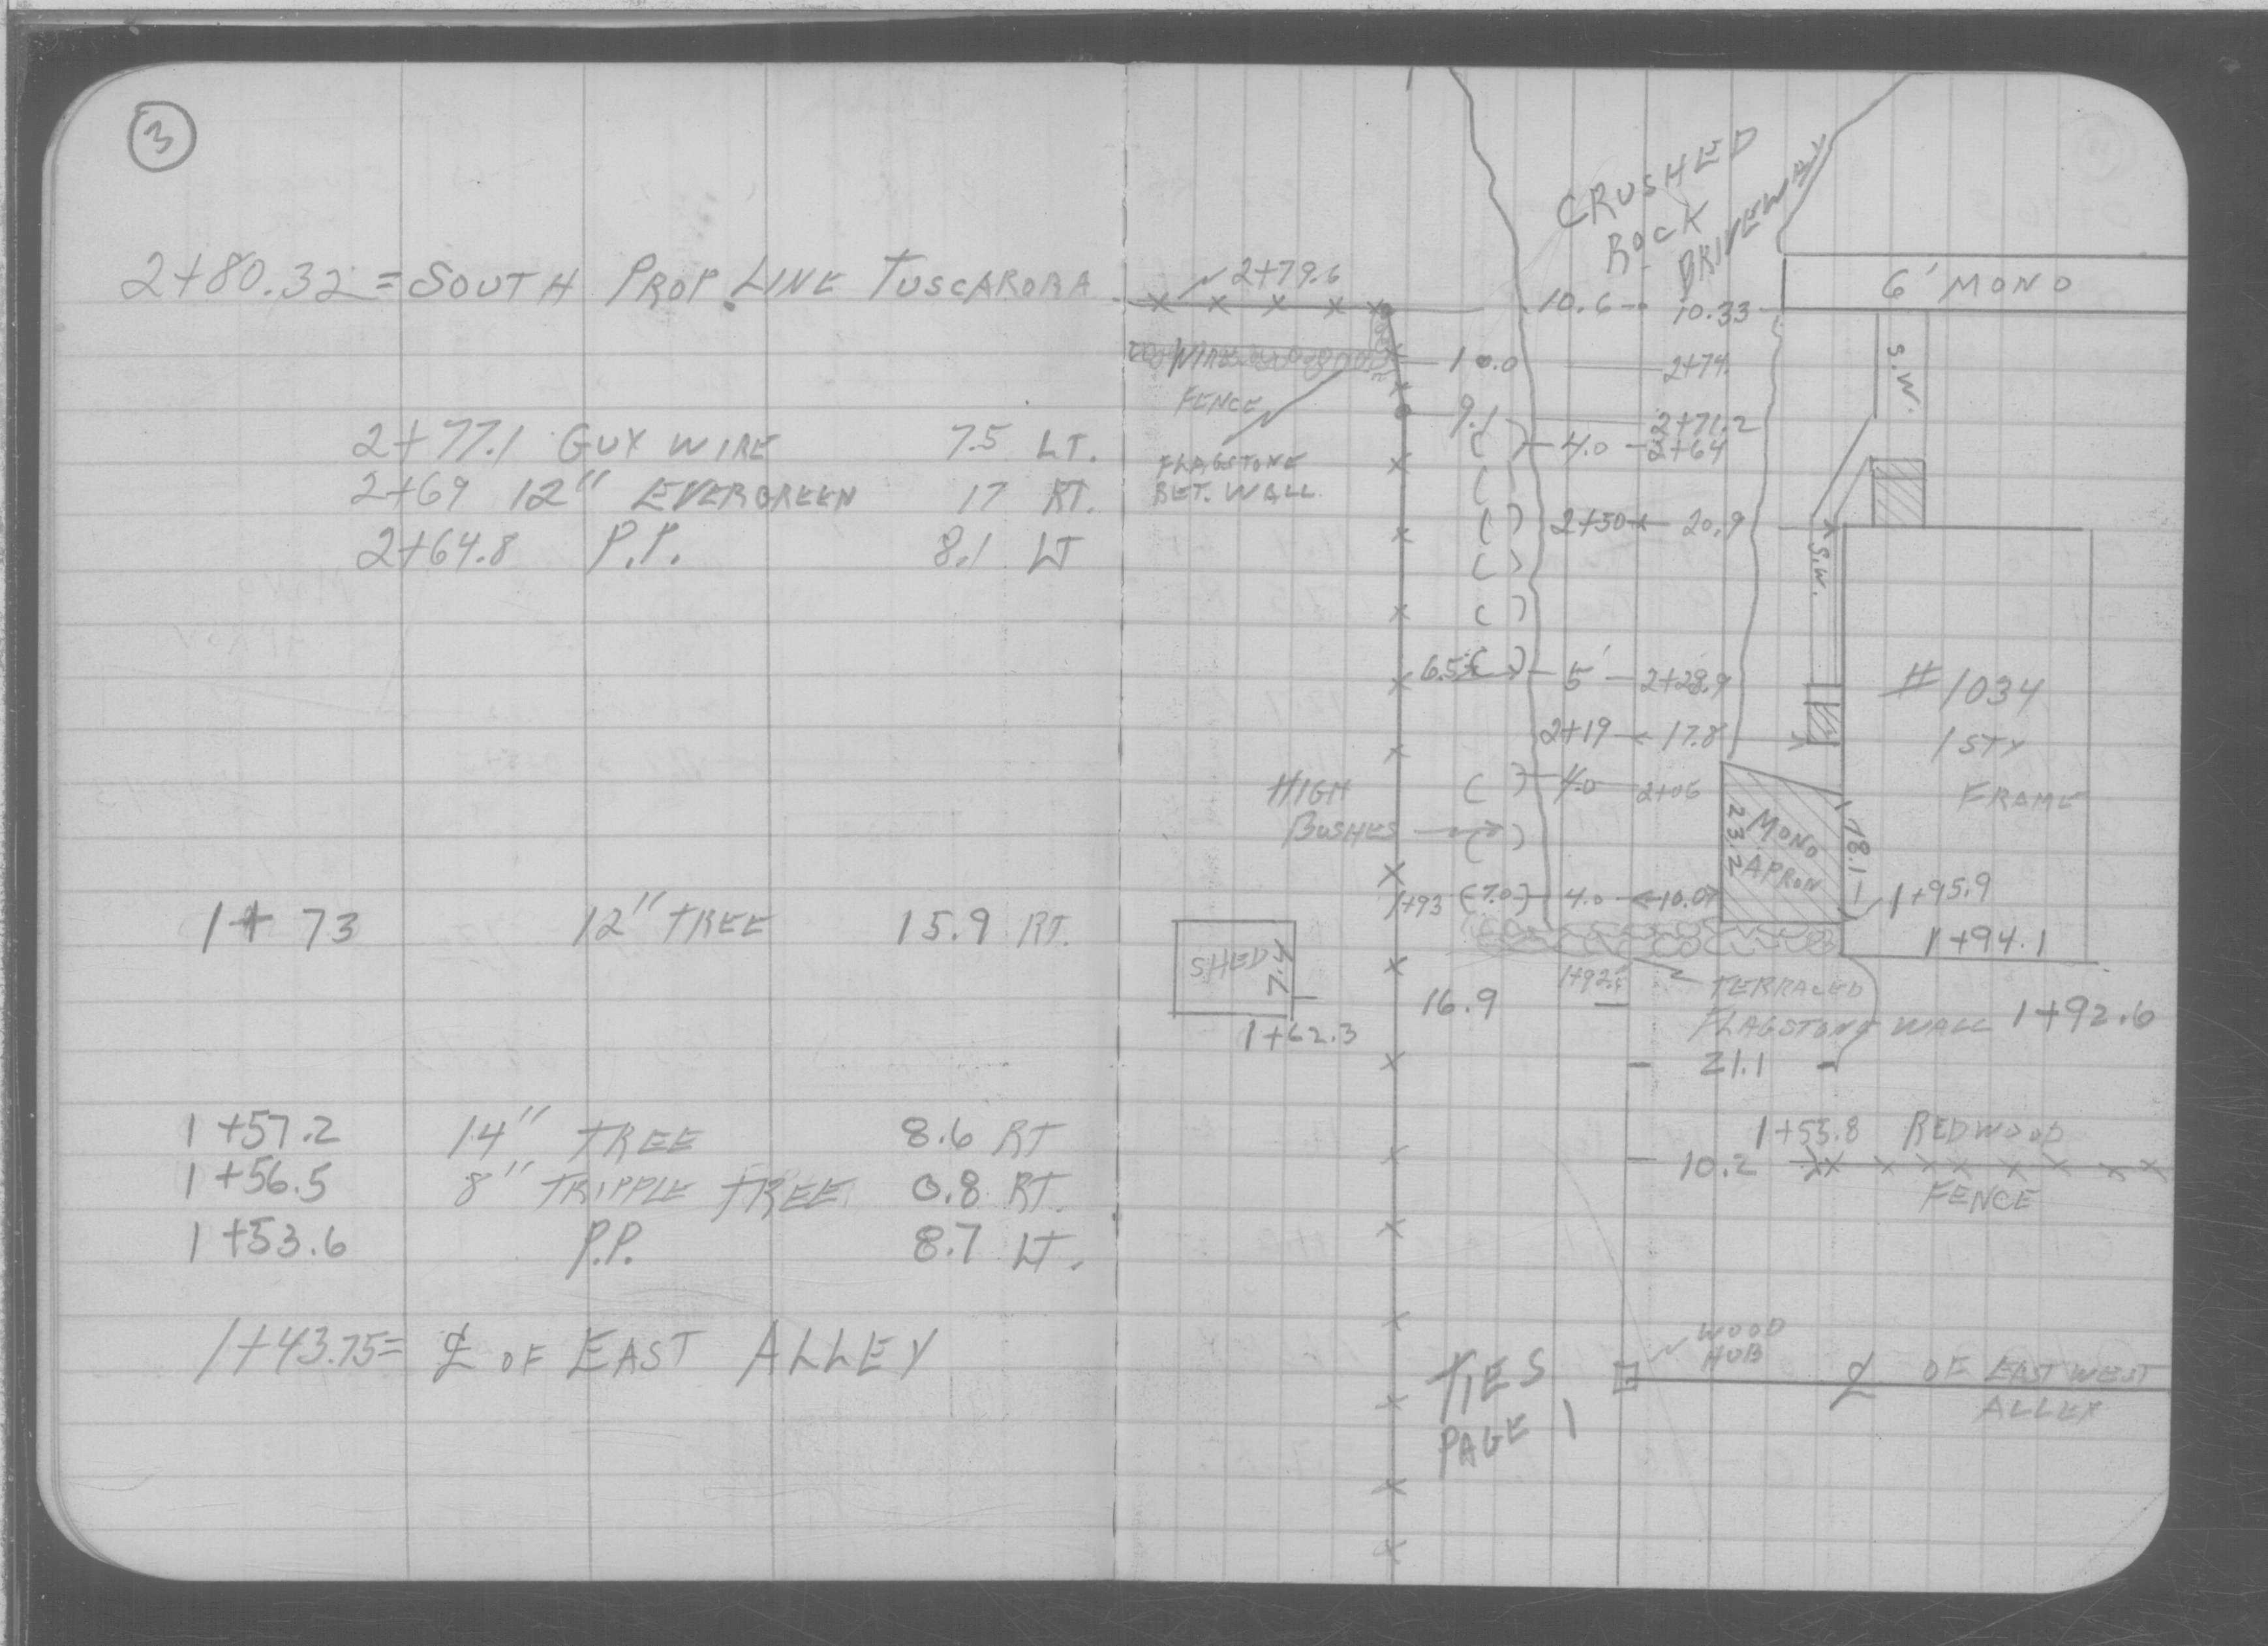 3
2+80.32 = SOUTH PROP. LINE TUSCARORA
2+77.1 GUY WIRE 7.5 LT.
2+69 12" EVERGREEN 17 RT.
2+64.8 P.P. 8.1 LT
1+73 12" TREE 15.9 RT.
1+57.2 14" TREE 8.6 RT
1+56.5 8" TRIPPLE TREE 0.8 RT.
1+53.6 P.P. 8.7 LT.
1+43.75 = ℄ OF EAST ALLEY
CRUSHED
ROCK
DRIVEWAY
2+79.6
10.6 10.33
6' MONO
WIRE
FENCE
10.0 2+74.
S.W.
9.1 2+71.2
4.0 2+64
FLAGSTONE
RET. WALL
2+50 20.9
S.W.
6.5 5' 2+28.9
#1034
1 STY
FRAME
2+19 17.8
HIGH
BUSHES
4.0 2+05
23.2
MONO
APRON
18.1
1+93 (7.0) 4.0 10.0
1+95.9
1+94.1
SHED
7.4
1+62.3
16.9
TERRACED
FLAGSTONE WALL 1+92.6
21.1
1+55.8 REDWOOD
10.2
FENCE
WOOD
HUB
TIES
PAGE 1
℄ OF EAST WEST
ALLEY